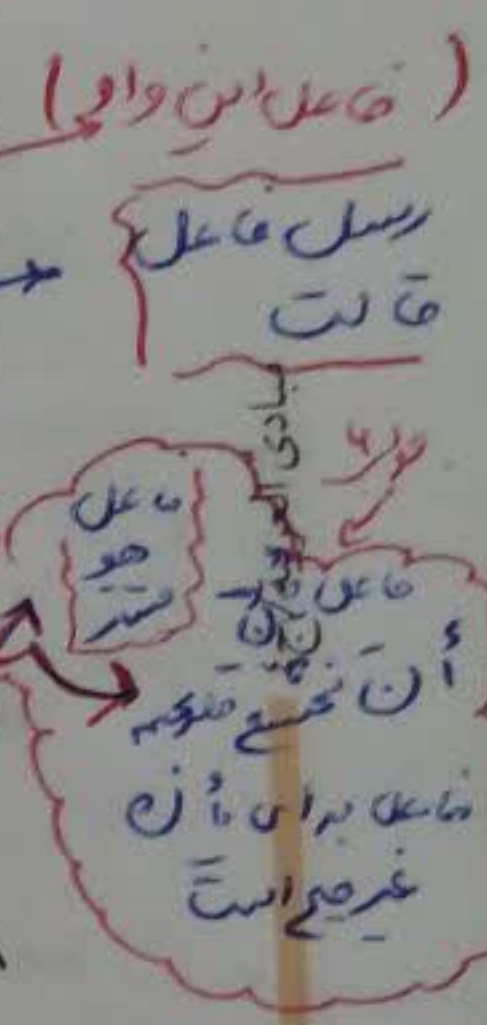 (فاعل این واو)
رسل فاعل
قالت
فاعل
هو
مستتر
فاعل
أن تخشع قلوبهم
فاعل برای یأن
غیر صریح است